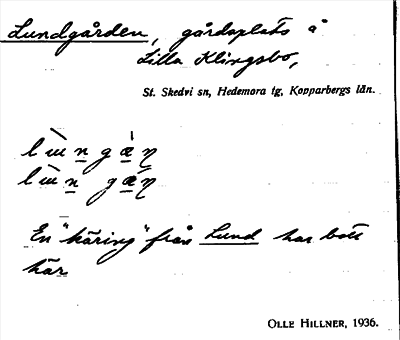 Lundgården, gårdsplats å
Lilla Klingsbo,
St. Skedvi sn, Hedemora tg, Kopparbergs län.
En "käring" från Lund har bott
här
OLLE HILLNER, 1936.